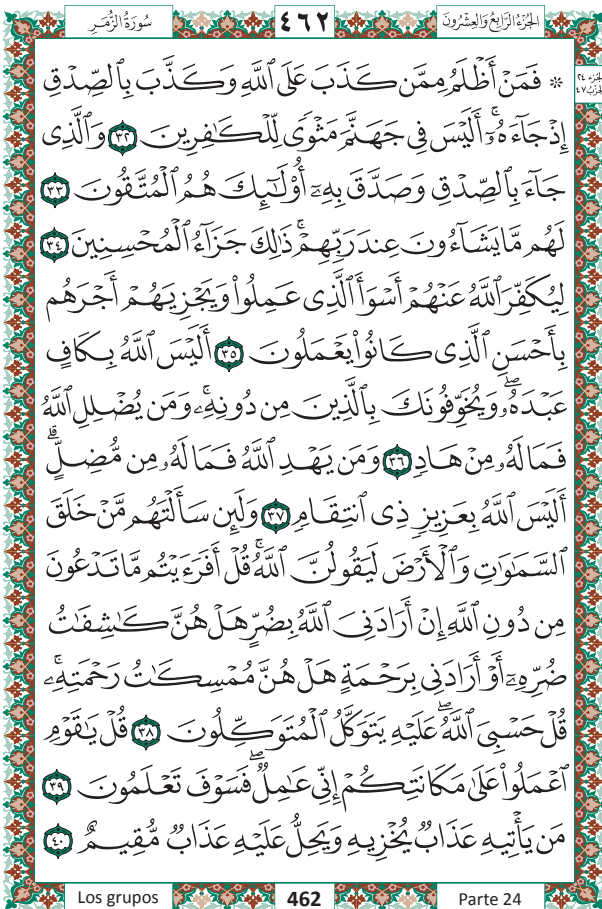 سُورَةُ الزُّمَرِ ٤٦٢ الجُزْءُ الرَّابِعُ وَالعِشْرُونَ
۞ فَمَنْ أَظْلَمُ مِمَّن كَذَبَ عَلَى ٱللَّهِ وَكَذَّبَ بِٱلصِّدْقِ
إِذْ جَآءَهُۥٓۚ أَلَيْسَ فِى جَهَنَّمَ مَثْوًى لِّلْكَٰفِرِينَ ٣٢ وَٱلَّذِى
جَآءَ بِٱلصِّدْقِ وَصَدَّقَ بِهِۦٓ أُو۟لَٰٓئِكَ هُمُ ٱلْمُتَّقُونَ ٣٣
لَهُم مَّا يَشَآءُونَ عِندَ رَبِّهِمْۚ ذَٰلِكَ جَزَآءُ ٱلْمُحْسِنِينَ ٣٤
لِيُكَفِّرَ ٱللَّهُ عَنْهُمْ أَسْوَأَ ٱلَّذِى عَمِلُوا۟ وَيَجْزِيَهُمْ أَجْرَهُم
بِأَحْسَنِ ٱلَّذِى كَانُوا۟ يَعْمَلُونَ ٣٥ أَلَيْسَ ٱللَّهُ بِكَافٍ
عَبْدَهُۥۖ وَيُخَوِّفُونَكَ بِٱلَّذِينَ مِن دُونِهِۦۚ وَمَن يُضْلِلِ ٱللَّهُ
فَمَا لَهُۥ مِنْ هَادٍ ٣٦ وَمَن يَهْدِ ٱللَّهُ فَمَا لَهُۥ مِن مُّضِلٍّۗ
أَلَيْسَ ٱللَّهُ بِعَزِيزٍ ذِى ٱنتِقَامٍ ٣٧ وَلَئِن سَأَلْتَهُم مَّنْ خَلَقَ
ٱلسَّمَٰوَٰتِ وَٱلْأَرْضَ لَيَقُولُنَّ ٱللَّهُۚ قُلْ أَفَرَءَيْتُم مَّا تَدْعُونَ
مِن دُونِ ٱللَّهِ إِنْ أَرَادَنِىَ ٱللَّهُ بِضُرٍّ هَلْ هُنَّ كَٰشِفَٰتُ
ضُرِّهِۦٓ أَوْ أَرَادَنِى بِرَحْمَةٍ هَلْ هُنَّ مُمْسِكَٰتُ رَحْمَتِهِۦۚ
قُلْ حَسْبِىَ ٱللَّهُۖ عَلَيْهِ يَتَوَكَّلُ ٱلْمُتَوَكِّلُونَ ٣٨ قُلْ يَٰقَوْمِ
ٱعْمَلُوا۟ عَلَىٰ مَكَانَتِكُمْ إِنِّى عَٰمِلٌۖ فَسَوْفَ تَعْلَمُونَ ٣٩
مَن يَأْتِيهِ عَذَابٌ يُخْزِيهِ وَيَحِلُّ عَلَيْهِ عَذَابٌ مُّقِيمٌ ٤٠
الجزء ٢٤
الحزب ٤٧
Los grupos 462 Parte 24